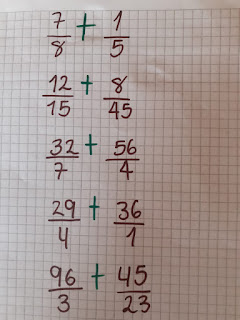 7/8 + 1/5
12/15 + 8/45
32/7 + 56/4
29/4 + 36/1
96/3 + 45/23